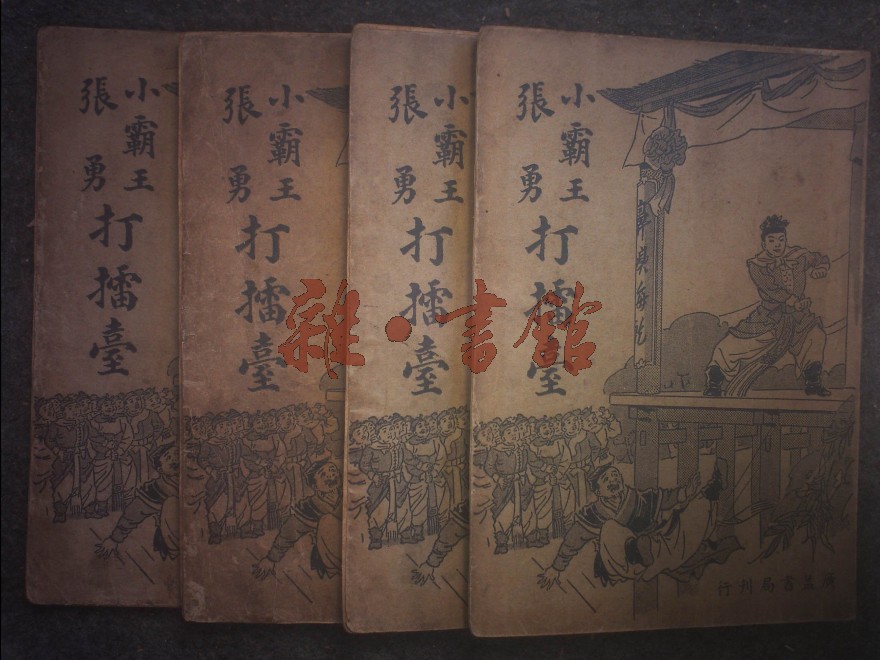 小霸王
張勇
打擂臺
小霸王
張勇
打擂臺
小霸王
張勇
打擂臺
小霸王
張勇
打擂臺
廣益書局刊行
雜·書館